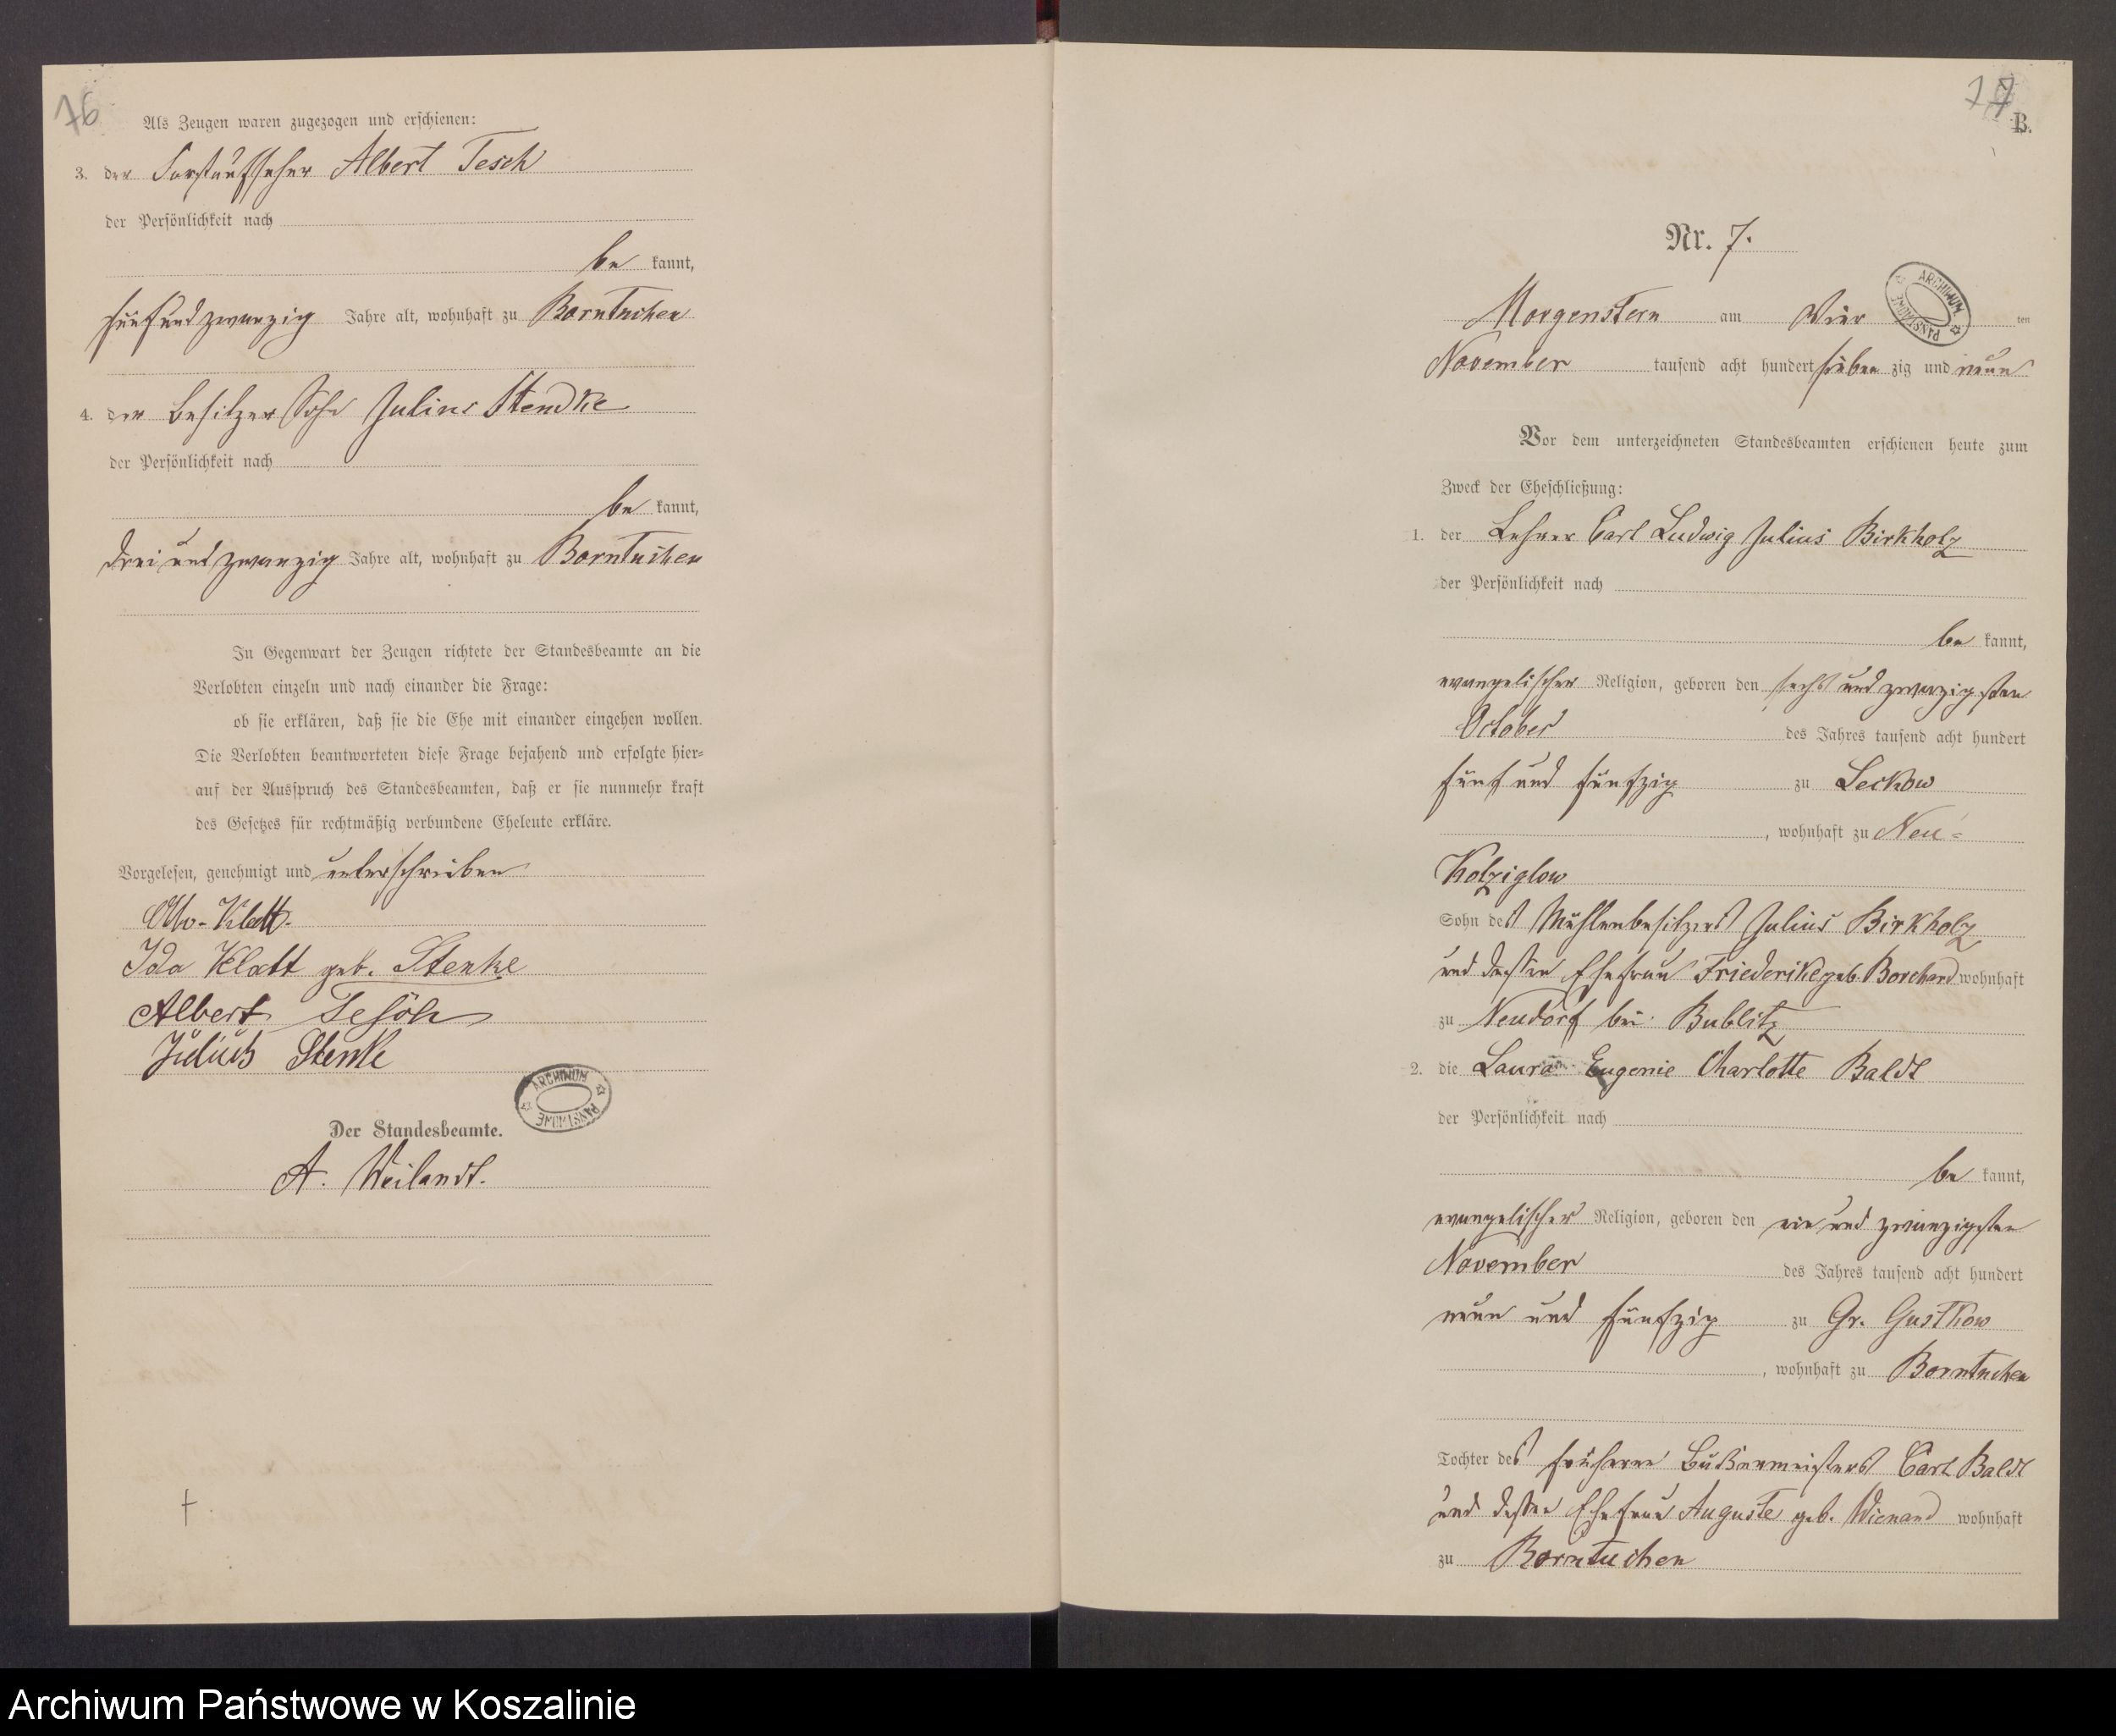 76
Als Zeugen waren zugezogen und erschienen:
3. der Forstaufseher Albert Tesch
der Persönlichkeit nach
be kannt,
fünf und zwanzig Jahre alt, wohnhaft zu Borntuchen
4. der Besitzer Sohn Julius Stendke
der Persönlichkeit nach
be kannt,
drei und zwanzig Jahre alt, wohnhaft zu Borntuchen
In Gegenwart der Zeugen richtete der Standesbeamte an die
Verlobten einzeln und nach einander die Frage:
ob sie erklären, daß sie die Ehe mit einander eingehen wollen.
Die Verlobten beantworteten diese Frage bejahend und erfolgte hier-
auf der Ausspruch des Standesbeamten, daß er sie nunmehr kraft
des Gesetzes für rechtmäßig verbundene Eheleute erkläre.
Vorgelesen, genehmigt und unterschrieben
Otto Klatt.
Ida Klatt geb. Stenke
Albert Tesch
Julius Stenke
ARCHIWUM PAŃSTWOWE
Der Standesbeamte.
A. Weilandt.
77
B.
Nr. 7.
ARCHIWUM PAŃSTWOWE
Morgenstern am Vier ten
November tausend acht hundert sieben zig und neun
Vor dem unterzeichneten Standesbeamten erschienen heute zum
Zweck der Eheschließung:
1. der Lehrer Carl Ludwig Julius Birkholz
der Persönlichkeit nach
be kannt,
evangelischer Religion, geboren den sechs und zwanzigsten
October des Jahres tausend acht hundert
fünf und fünfzig zu Leckow
, wohnhaft zu Neu-
Kolziglow
Sohn des Mühlenbesitzers Julius Birkholz
und dessen Ehefrau Friederike geb. Borchard wohnhaft
zu Neudorf bei Bublitz
2. die Laura Eugenie Charlotte Baldt
der Persönlichkeit nach
be kannt,
evangelischer Religion, geboren den ein und zwanzigsten
November des Jahres tausend acht hundert
neun und fünfzig zu Gr. Gustkow
, wohnhaft zu Borntuchen
Tochter des früheren Carl Baldt
und dessen Ehefrau Auguste geb. Wienand wohnhaft
zu Borntuchen
Archiwum Państwowe w Koszalinie